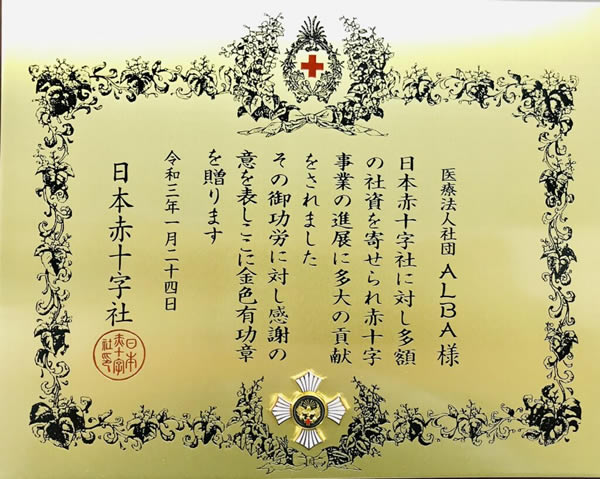 医療法人社団 ALBA 様
日本赤十字社に対し多額
の社資を寄せられ赤十字
事業の進展に多大の貢献
をされました
その御功労に対し感謝の
意を表しここに金色有功章
を贈ります
令和三年一月二十四日
日本赤十字社
日本
赤十字
社印